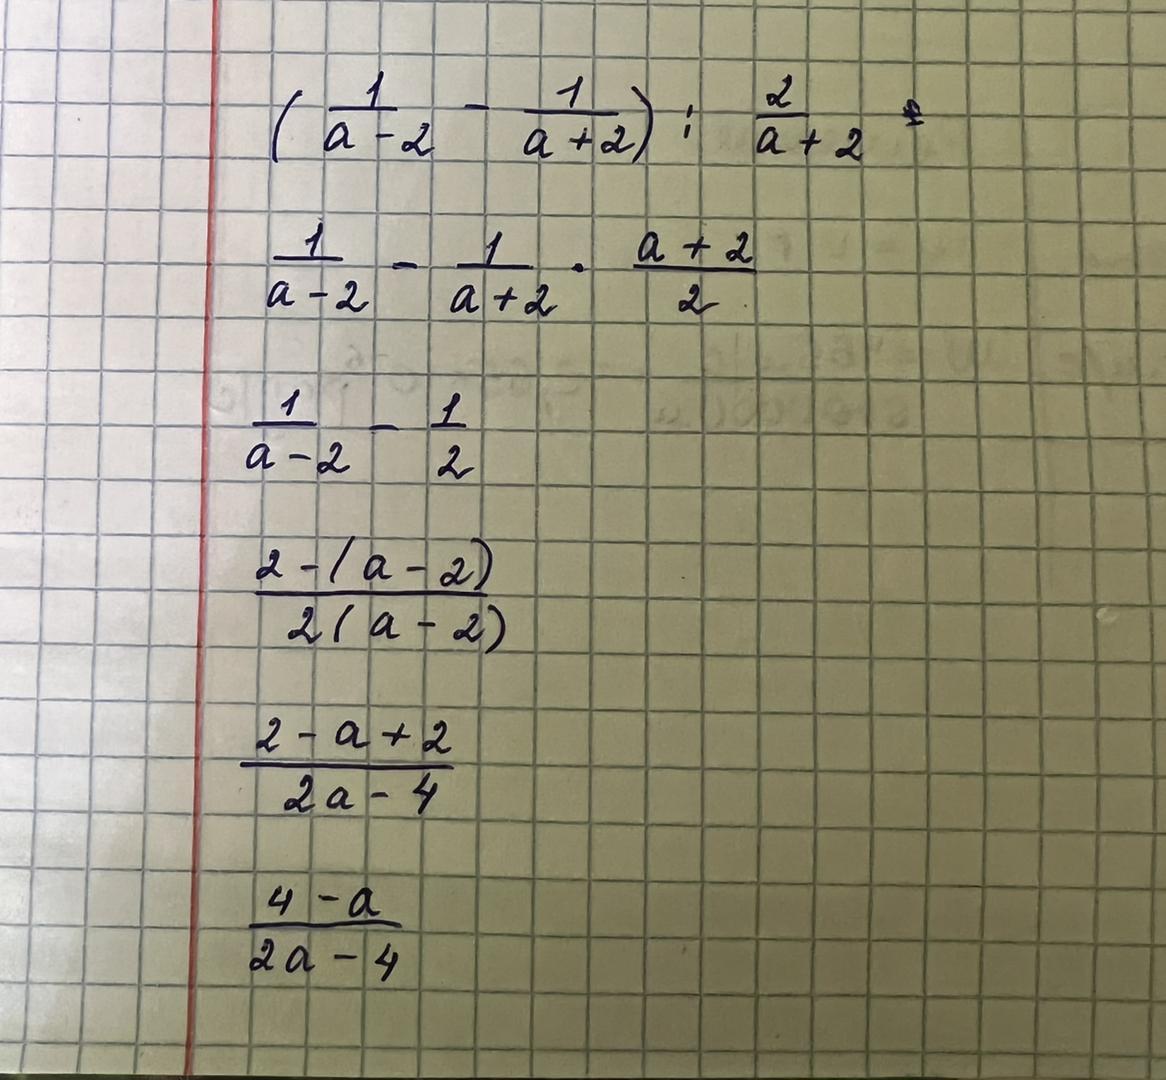 ( 1/(a - 2) - 1/(a + 2) ) : 2/(a + 2) =
1/(a - 2) - 1/(a + 2) · (a + 2)/2
1/(a - 2) - 1/2
(2 - (a - 2))/(2(a - 2))
(2 - a + 2)/(2a - 4)
(4 - a)/(2a - 4)